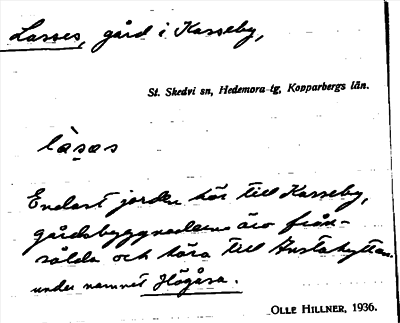 Lasses, gård i Kasseby,
St. Skedvi sn, Hedemora tg, Kopparbergs län.
làsas
Endast jorden hör till Kasseby,
gårdsbyggnaderna äro från-
sålda och höra till Anstahyttan
under namnet Högåsa.
OLLE HILLNER, 1936.